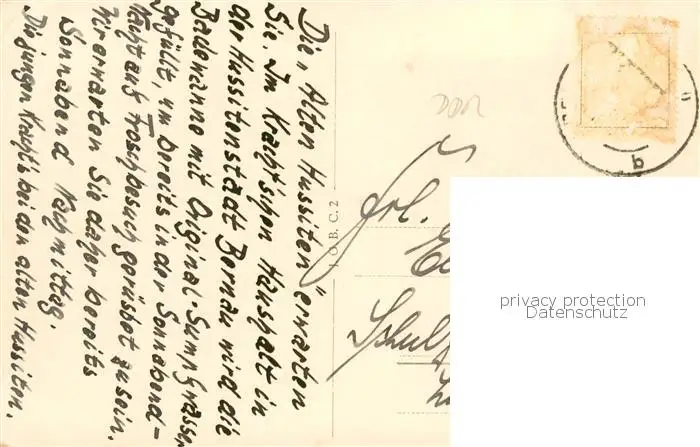 Die „Alten Hussiten" erwarten
Sie. Im Krachtschen Haushalt in
der Hussitenstadt Bernau wird die
Badewanne mit Original-Sumpfwasser
gefüllt, um bereits in der Sonnabend-
Nacht auf Froschbesuch gerüstet zu sein.
Wir erwarten Sie daher bereits
Sonnabend Nachmittag.
Die jungen Kracht's bei den alten Hussiten.
J O B. C. 2
Frl.
privacy protection
Datenschutz